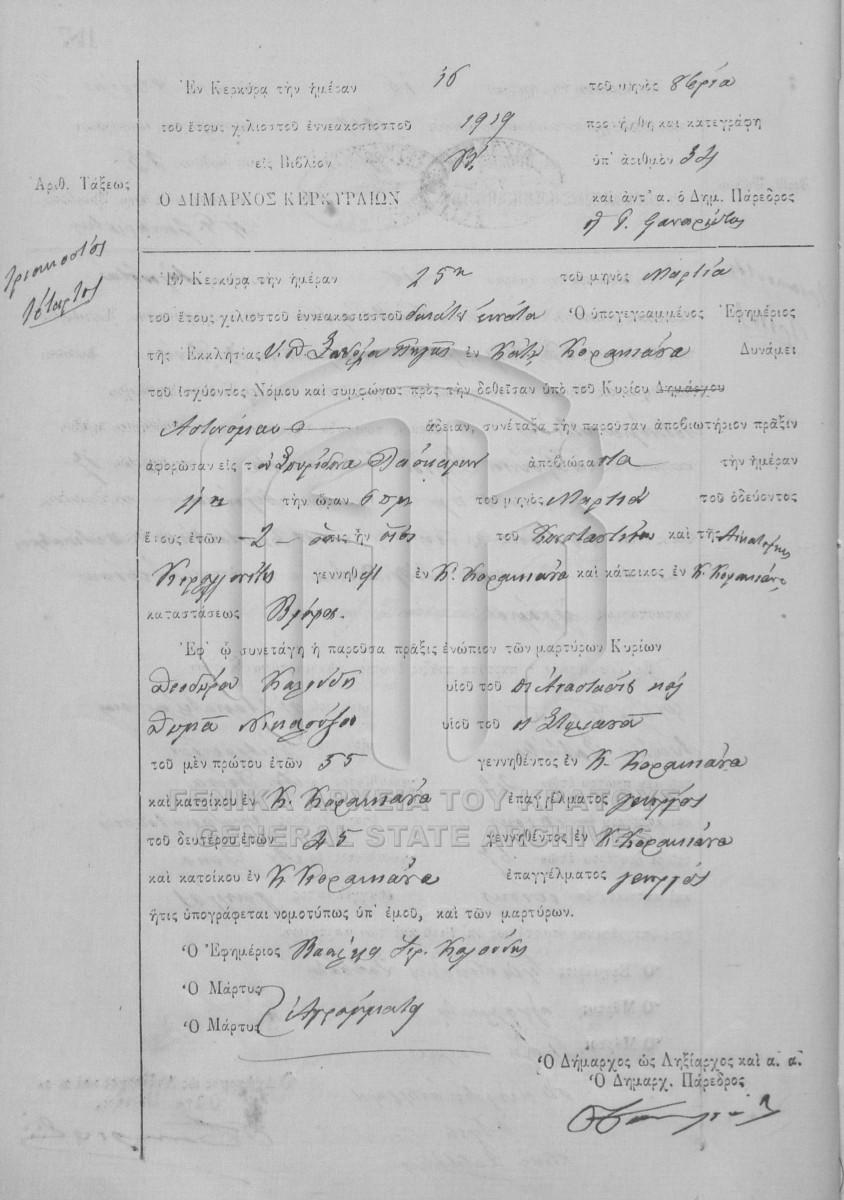 Ἐν Κερκύρᾳ τὴν ἡμέραν 16 τοῦ μηνὸς 8βρίου
τοῦ ἔτους χιλιοστοῦ ἐννεακοσιοστοῦ 1919 προσήχθη καὶ κατεγράφη
εἰς Βιβλίον Β' ὑπ' ἀριθμὸν 34
Ἀριθ. Τάξεως
Ο ΔΗΜΑΡΧΟΣ ΚΕΡΚΥΡΑΙΩΝ καὶ ἀντ' α. ὁ Δημ. Πάρεδρος
τριακοστὸς
τέταρτος
Ἐν Κερκύρᾳ τὴν ἡμέραν 25η τοῦ μηνὸς Μαρτίου
τοῦ ἔτους χιλιοστοῦ ἐννεακοσιοστοῦ δεκάτου ἐννάτου Ὁ ὑπογεγραμμένος Ἐφημέριος
τῆς Ἐκκλησίας ἐν Κάτω Κορακιάνα Δυνάμει
τοῦ ἰσχύοντος Νόμου καὶ συμφώνως πρὸς τὴν δοθεῖσαν ὑπὸ τοῦ Κυρίου Δημάρχου
Ἀστυνόμου ἄδειαν, συνέταξα τὴν παροῦσαν ἀποβιωτήριον πρᾶξιν
ἀφορῶσαν εἰς τὸν Σπυρίδωνα Λάσκαριν ἀποβιώσαντα τὴν ἡμέραν
τὴν ὥραν 6 πμ τοῦ μηνὸς Μαρτίου τοῦ ὁδεύοντος
ἔτους ἐτῶν -2- ὅστις ἦν υἱὸς τοῦ Κωνσταντίνου καὶ τῆς Αἰκατερίνης
γεννηθεὶς ἐν Κ. Κορακιάνα καὶ κάτοικος ἐν Κ. Κορακιάνα
καταστάσεως Βρέφος.
Ἐφ' ᾧ συνετάγη ἡ παροῦσα πρᾶξις ἐνώπιον τῶν μαρτύρων Κυρίων
Θεοδώρου Καλούδη υἱοῦ τοῦ Ἀναστασίου καὶ
Θωμᾶ υἱοῦ τοῦ
τοῦ μὲν πρώτου ἐτῶν 55 γεννηθέντος ἐν Κ. Κορακιάνα
καὶ κατοίκου ἐν Κ. Κορακιάνα ἐπαγγέλματος γεωργὸς
ΓΕΝΙΚΑ ΑΡΧΕΙΑ ΤΟΥ ΚΡΑΤΟΥΣ
GENERAL STATE ARCHIVES
τοῦ δευτέρου ἐτῶν 25 γεννηθέντος ἐν Κ. Κορακιάνα
καὶ κατοίκου ἐν Κ. Κορακιάνα ἐπαγγέλματος γεωργὸς
ἥτις ὑπογράφεται νομοτύπως ὑπ' ἐμοῦ, καὶ τῶν μαρτύρων.
Ὁ Ἐφημέριος Καλούδης
Ὁ Μάρτυς
Ὁ Μάρτυς Ἀγράμματοι
Ὁ Δήμαρχος ὡς Ληξίαρχος καὶ α. α.
Ὁ Δημαρχ. Πάρεδρος